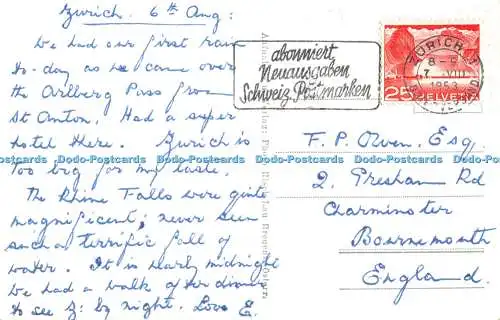 Zurich. 6th Aug:
We had our first rain
to-day as we came over
the Arlberg Pass from
St Anton. Had a super
hotel there. Zurich is
too big for my taste.
The Rhine Falls were quite
magnificent; never seen
such a terrific fall of
water. It is nearly midnight
we had a walk after dinner
to see Z: by night. Love E.
abonniert
Neuausgaben
Schweiz. Postmarken
ZÜRICH
8-
7. VIII
1953
25 HELVETIA
F. P. Owen. Esq.
2. Gresham Rd
Charminster
Bournemouth
England.
Dodo-Postcards Dodo-Postcards Dodo-Postcards Dodo-Postcards Dodo-Postcards Dodo-Postcards